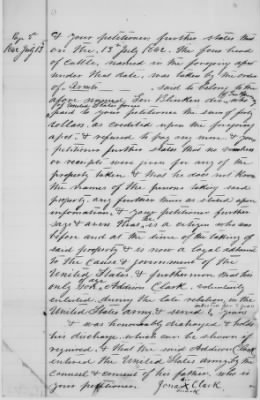 Page 5
& your petitioner further states that
on the 13th July 1862. the four head
of Cattle, named in the foregoing
under that date, was taken by the order
of said to belong to the
above named Gen
of United States
paid to your petitioner the sum of forty
dollars, as credited upon the foregoing
& refused to pay any more. & your
petitioner further states that no vouchers
or receipts were given for any of the
property taken & that he does not know
the names of the persons taking said
property any further than as stated upon
information & your petitioner further
says & avers that is a citizen who was
before and at the time of the taking of
said property & is now a loyal adherent
to the cause & government of the
United States. & furthermore that his
only son, Addison Clark, voluntarily
enlisted during the late rebellion in the
United States army & served 1 year
& was honorably discharged & holds
his discharge which can be shown if
required. & that the said Addison Clark
entered the United States army by the
counsel & consent of his father who is
your petitioner.
Jonas Clark